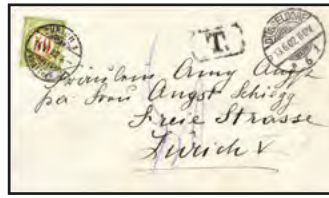 T.
DÜSSELDORF
Fräulein Amy Angst
pa Frau Angst Schiegg
Freie Strasse
Zürich V